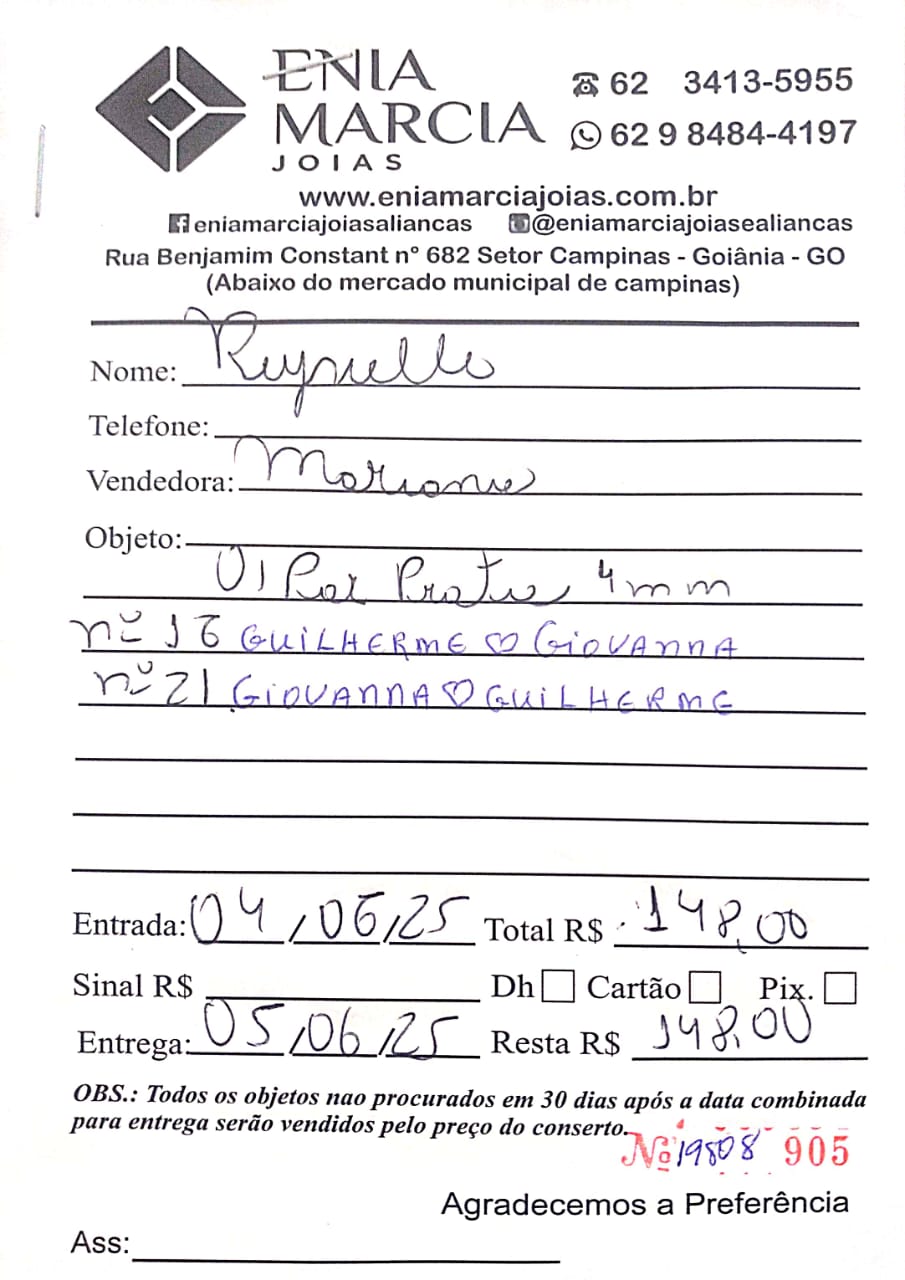 ENIA
MARCIA
JOIAS
62 3413-5955
62 9 8484-4197
www.eniamarciajoias.com.br
eniamarciajoiasaliancas @eniamarciajoiasealiancas
Rua Benjamim Constant nº 682 Setor Campinas - Goiânia - GO
(Abaixo do mercado municipal de campinas)
Nome:
Telefone:
Vendedora: Mariane
Objeto:
01 Par Prata 4mm
nº 16 GUILHERME ♡ GIOVANNA
nº 21 GIOVANNA ♡ GUILHERME
Entrada: 04/06/25 Total R$ 148,00
Sinal R$ Dh Cartão Pix.
Entrega: 05/06/25 Resta R$ 148,00
OBS.: Todos os objetos nao procurados em 30 dias após a data combinada
para entrega serão vendidos pelo preço do conserto.
Nº 19808 905
Agradecemos a Preferência
Ass: